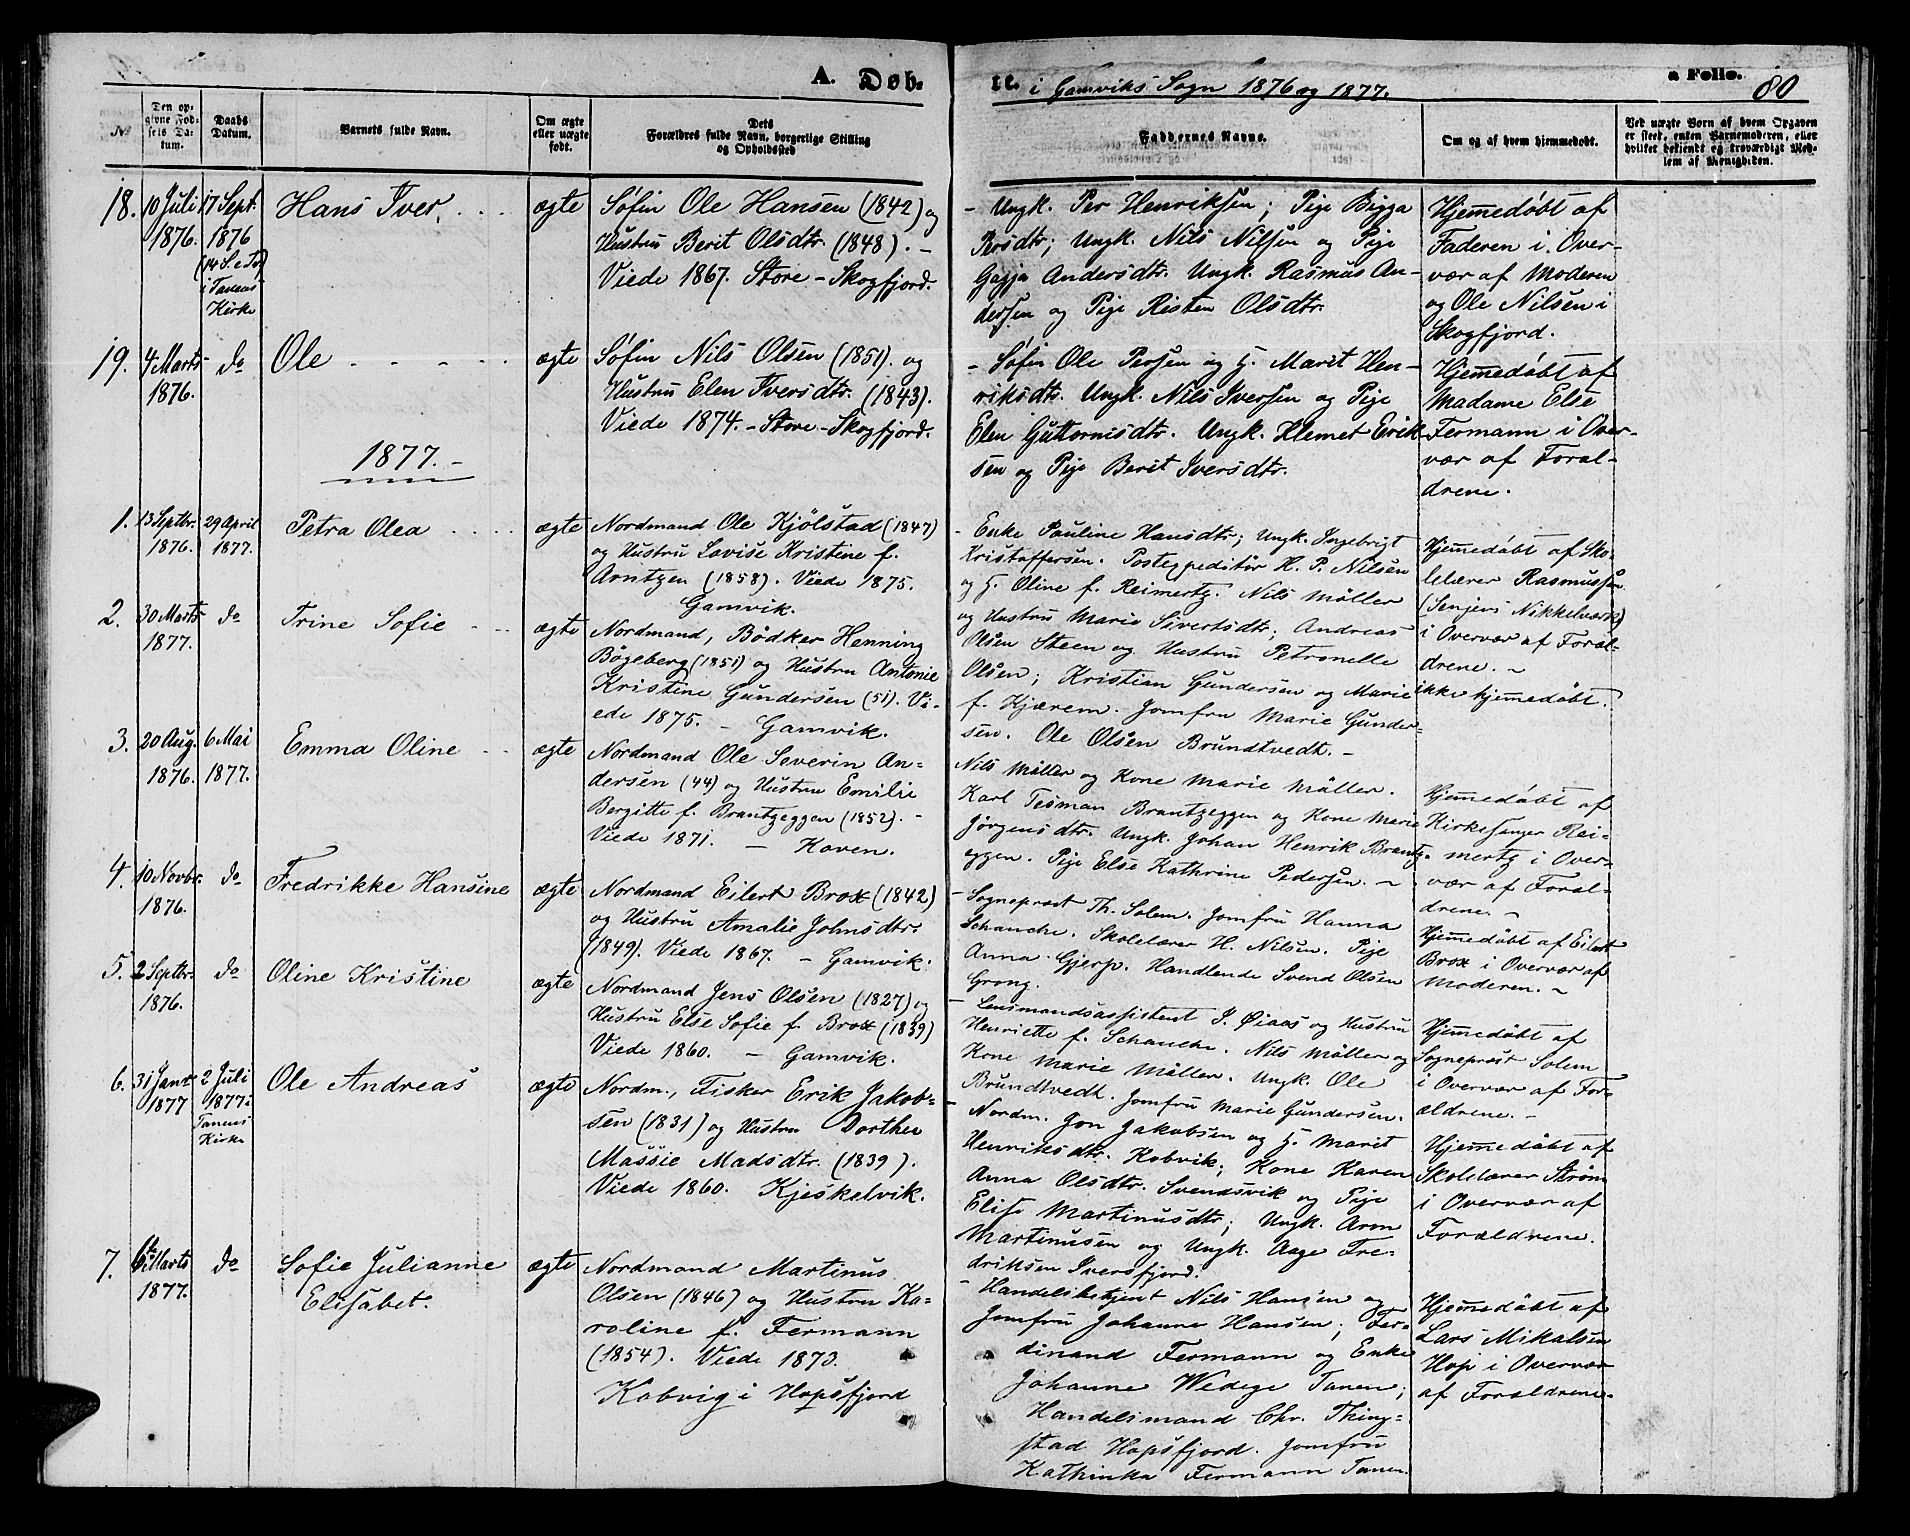 A. Døb-
te. i Gamviks Sogn 1876 og 1877.
a Folio. 80
No
Den op-
givne Fød-
sels Da-
tum.
Daabs
Datum.
Barnets fulde Navn.
Om ægte
eller uægte
født.
Dets
Forældres fulde Navn, borgerlige Stilling
og Opholdssted
Faddernes Navne.
Om og af hvem hjemmedøbt.
Ved uægte Børn af hvem Opgaven
er skeet, enten Barnemoderen, eller
hvilket bekjendt og troværdigt Med-
lem af Menigheden.
18.
10 Juli
1876.
17 Sept.
1876
(14 S. e Tr)
i Tanens
Kirke
Hans Iver.
ægte
Søfin Ole Hansen (1842) og
Hustru Berit Olsdtr. (1848). -
Viede 1867. Store-Skogfjord.
- Ungk. Per Henriksen; Pige Bigga
Persdtr; Ungk. Nils Nilsen og Pige
Gagja Andersdtr. Ungk. Rasmus An-
dersen og Pige Risten Olsdtr.
Hjemedøbt af
Faderen i Over-
vær af Moderen
og Ole Nilsen i
Skogfjord.
19.
4 Marts
1876.
do
Ole
ægte
Søfin Nils Olsen (1851). og
Hustru Elen Iversdtr. (1843).
Viede 1874. - Store-Skogfjord.
- Søfin Ole Persen og H. Marit Hen-
riksdtr. Ungk. Nils Iversen og Pige
Elen Guttormsdtr. Ungk. Klemet Erik-
sen og Pige Berit Iversdtr.
Hjemedøbt af
Madame Else
Fermann i Over-
vær af Foræl-
drene.
1877. -
1.
13 Septbr.
1876.
29 April
1877.
Petra Olea
ægte
Nordmand Ole Kjölstad (1847)
og Hustru Lovise Kristine f.
Arntzen (1858). Viede 1875.
Gamvik.
- Enke Pauline Hansdtr; Ungk. Ingebrigt
Kristoffersen. Postexpeditör H. P. Nilsen
og H. Oline f. Reimertz. Nils Möller
og Hustru Marie Sivertsdtr; Andreas
Hjemedøbt af Sko-
lelærer Rasmussen
(Senjens Nikkelværk)
i Overvær af Foræl-
drene. -
2.
30 Marts
1877.
do
Trine Sofie
ægte
Nordmand, Bödker Henning
Bögeberg (1851) og Hustru Antonie
Kristine Gundersen (51). Vi-
ede 1875. - Gamvik.
Olsen Steen og Hustru Petronelle
Olsen; Kristian Gundersen og Marie
f. Kjærem. Jomfru Marie Gunder-
sen. Ole Olsen Brundtvedt. -
ikke hjemedøbt.
3.
20 Aug.
1876.
6 Mai
1877.
Emma Oline
ægte
Nordmand Ole Severin An-
dersen (44) og Hustru Emilie
Bergitte f. Brantzeggen (1852). -
Viede 1871. - Koven.
Nils Möller og Kone Marie Möller.
Karl Tesman Brantzeggen og Kone Marie
Jörgensdtr. Ungk. Johan Henrik Brantz-
eggen. Pige Else Kathrine Pedersen. -
Hjemedøbt af
Kirkesanger Rei-
mertz i Over-
vær af Foræl-
drene. -
4.
10 Novbr.
1876.
do
Fredrikke Hansine
ægte
Nordmand Eilert Brox (1842)
og Hustru Amalie Johnsdtr.
(1849). Viede 1867. - Gamvik.
- Sogneprest Th. Solem. Jomfru Hanna
Schanche. Skolelærer H. Nilsen. Pige
Anna Gjerp. Handlende Svend Olsen
Grong.
Hjemedøbt af Eilert
Brox i Overvær af
Moderen. -
5.
2 Septbr.
1876.
do
Oline Kristine
ægte
Nordmand Jens Olsen (1827) og
Hustru Else Sofie f. Brox (1839)
Viede 1860. - Gamvik.
- Lensmandsassistent J. Øiaas og Hustru
Henriette f. Schanche. Nils Möller og
Kone Marie Möller. Ungk. Ole
Brundtvedt. Jomfru Marie Gundersen.
Hjemedøbt af
Sogneprest Solem
i Overvær af For-
ældrene. -
6.
31 Janr
1877
2 Juli
1877 i
Tanens
Kirke
Ole Andreas
ægte
Nordm., Fisker Erik Jakob-
sen (1831) og Hustru Dorthea
Massie Madsdtr. (1839).
Viede 1860. Kjeskelvik.
- Nordm. Jon Jakobsen og H. Marit
Henriksdtr. Kobvik; Kone Karen
Anna Olsdtr. Svendsvik og Pige
Elise Martinusdtr; Ungk. Aron
Martinusen og Ungk. Aage Fre-
driksen Iversfjord.
Hjemedøbt af
Skolelærer Strøm
i Overvær af
Forældrene.
7.
6te Marts
1877.
do
Sofie Julianne
Elisabet.
ægte
Nordmand Martinus
Olsen (1846) og Hustru Ka-
roline f. Fermann
(1854). Viede 1873.
Kobvig i Hopsfjord
- Handelsbetjent Nils Hansen og
Jomfru Johanne Hansen; Fer-
dinand Fermann og Enke
Johanne Wedege Tanen;
Handelsmand Chr. Thing-
stad Hopsfjord. Jomfru
Kathinka Fermann Tanen.
Hjemedøbt af
Lars Mikalsen
Hop i Overvær
af Forældrene.